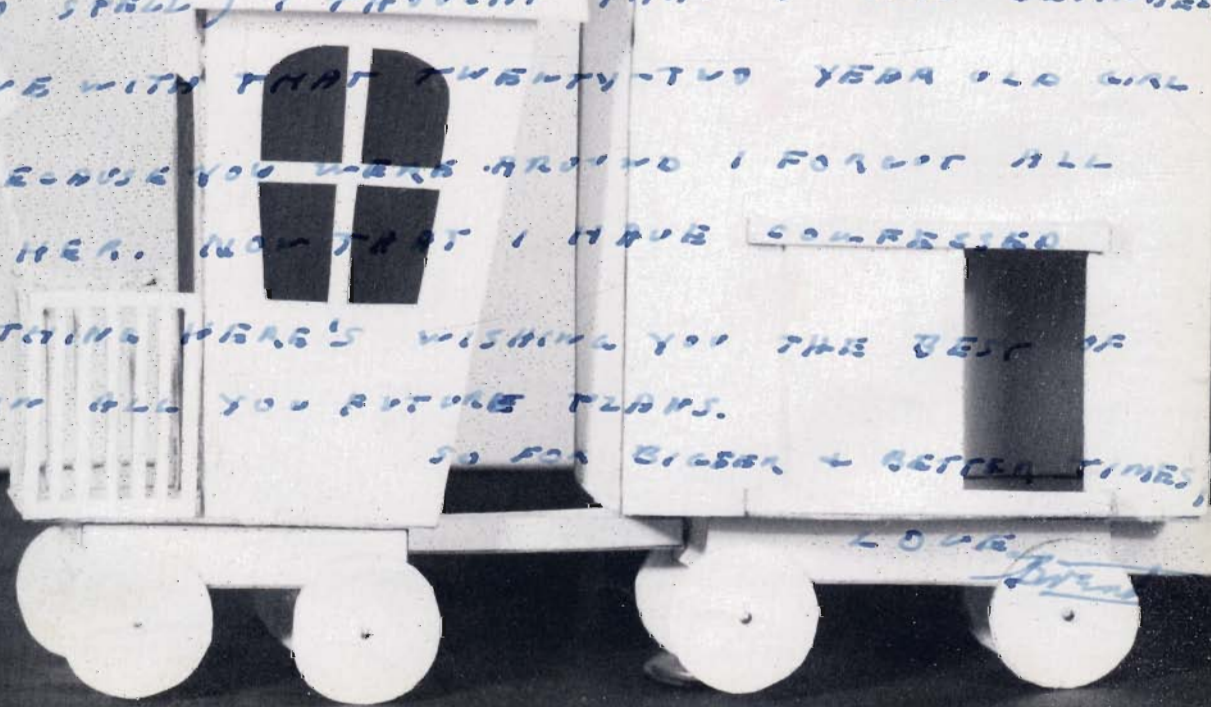 SPELL) I THOUGHT
WITH THAT TWENTY-TWO YEAR OLD GIRL
ECAUSE YOU WERE AROUND I FORGOT ALL
HER. NOW THAT I HAVE CONFESSED
THING HERE'S WISHING YOU THE BEST OF
IN ALL YOU FUTURE PLANS.
SO FOR BIGGER + BETTER TIMES,
LOVE,